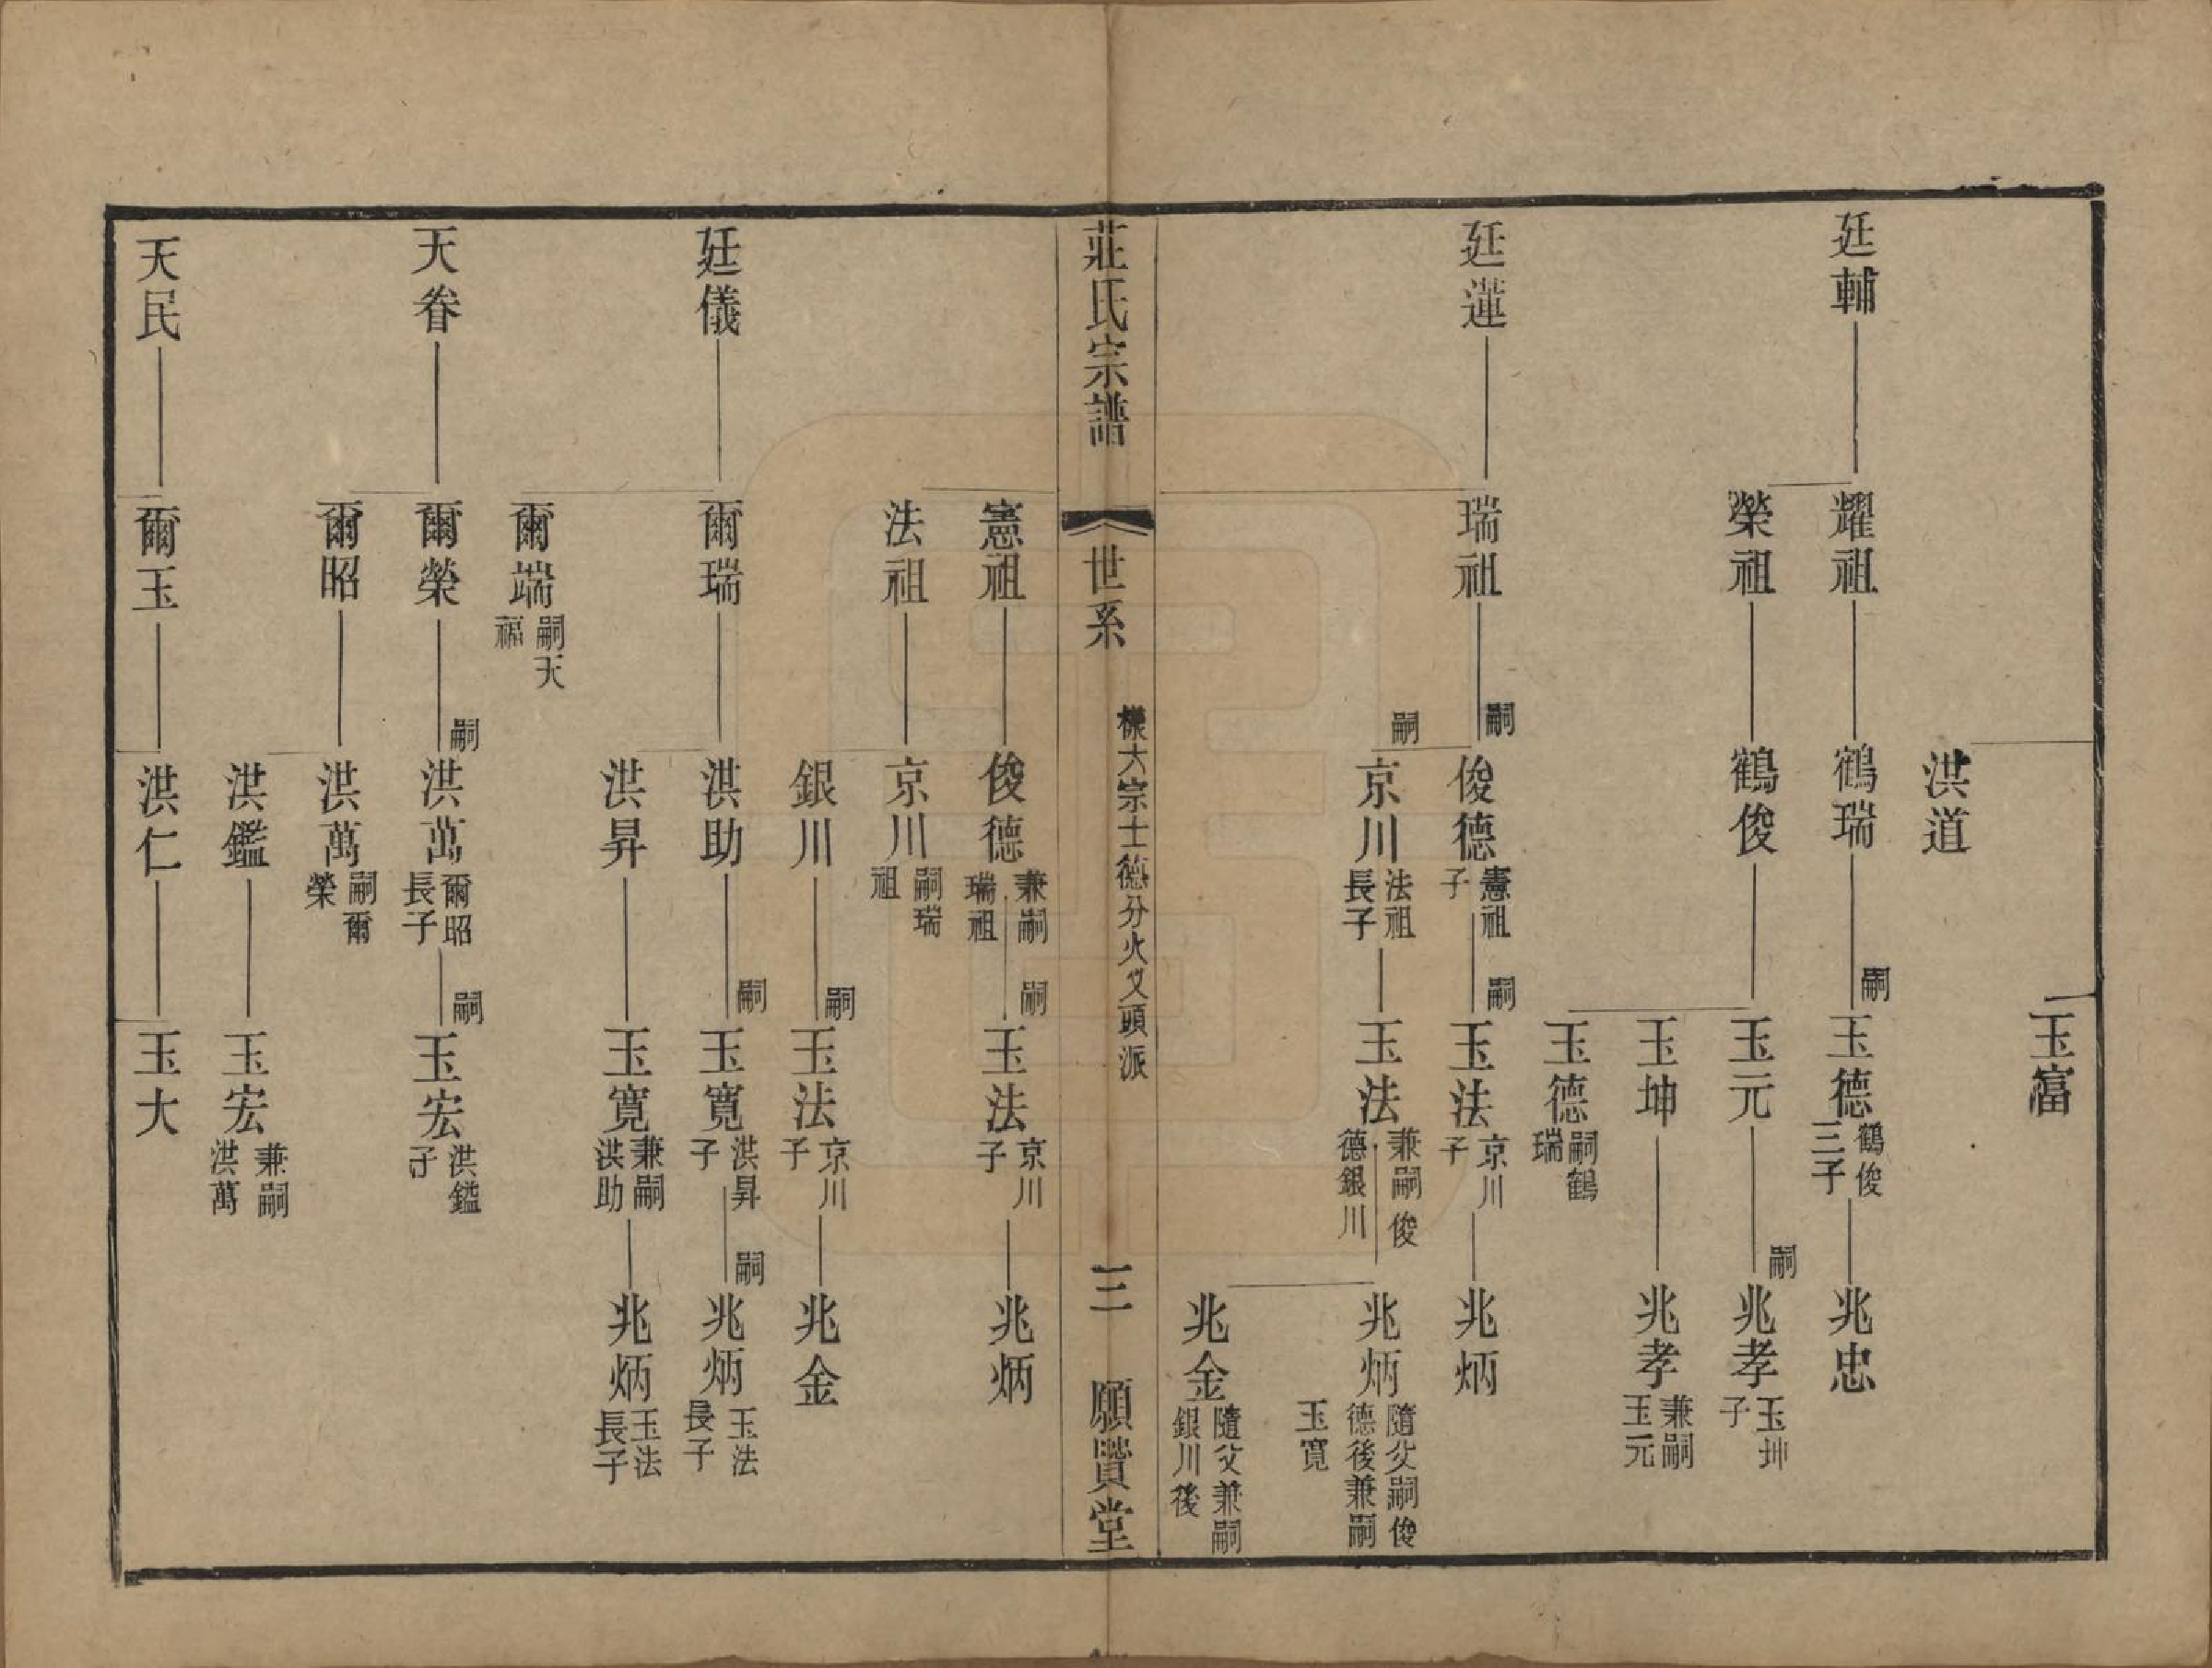 玉富
洪道
廷輔
耀祖
鶴瑞
嗣
玉德
鶴俊三子
兆忠
榮祖
鶴俊
玉元
嗣
兆孝
玉坤子
玉坤
兆孝
兼嗣玉元
玉德
嗣鶴瑞
廷蓮
瑞祖
嗣
俊德
憲祖子
嗣
玉法
京川子
兆炳
嗣
京川
法祖長子
玉法
兼嗣俊德銀川
兆炳
隨父嗣俊德後兼嗣玉寬
兆金
隨父兼嗣銀川後
莊氏宗譜
世系
檪大宗士德分火叉頭派
三
願賢堂
憲祖
俊德
兼嗣瑞祖
嗣
玉法
京川子
兆炳
法祖
京川
嗣瑞祖
銀川
嗣
玉法
京川子
兆金
廷儀
爾瑞
洪助
嗣
玉寬
洪昇子
嗣
兆炳
玉法長子
洪昇
玉寬
兼嗣洪助
兆炳
玉法長子
爾端
嗣天福
天眷
爾榮
嗣
洪萬
爾昭長子
嗣
玉宏
洪鎰子
爾昭
洪萬
嗣爾榮
洪鑑
玉宏
兼嗣洪萬
天民
爾玉
洪仁
玉大